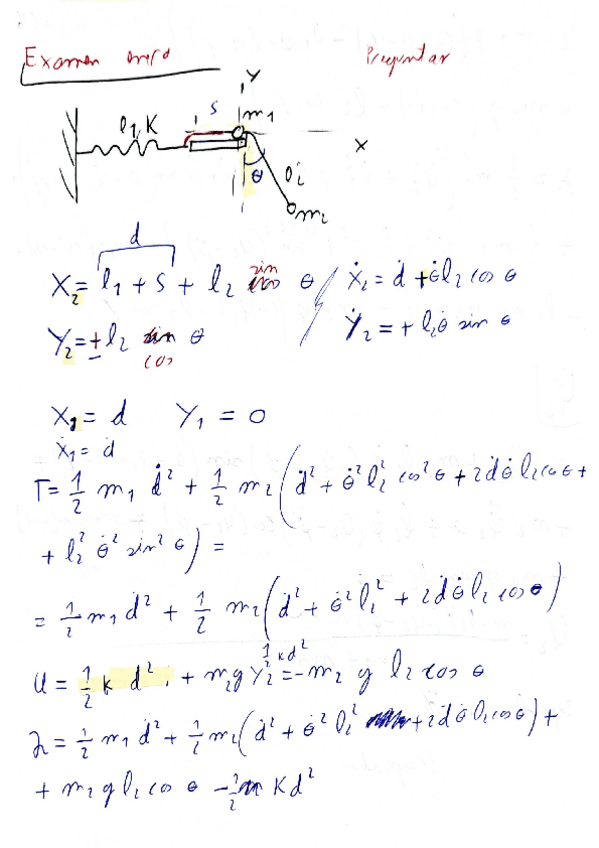 Examen Preguntar
Y
l₁, K S m₁
X
θ l₂
m₂
d
X₂ = l₁ + S + l₂ sin θ / ẋ₂ = ḋ + θ̇ l₂ cos θ
Y₂ = ± l₂ cos θ ẏ₂ = + l₂ θ̇ sin θ
X₁ = d Y₁ = 0
ẋ₁ = ḋ
T = 1/2 m₁ ḋ² + 1/2 m₂ (ḋ² + θ̇² l₂² cos² θ + 2 ḋ θ̇ l₂ cos θ +
+ l₂² θ̇² sin² θ) =
= 1/2 m₁ ḋ² + 1/2 m₂ (ḋ² + θ̇² l₂² + 2 ḋ θ̇ l₂ cos θ)
1/2 K d²
U = 1/2 K d² + m₂ g Y₂ = - m₂ g l₂ cos θ
L = 1/2 m₁ ḋ² + 1/2 m₂ (ḋ² + θ̇² l₂² + 2 ḋ θ̇ l₂ cos θ) +
+ m₂ g l₂ cos θ - 1/2 K d²